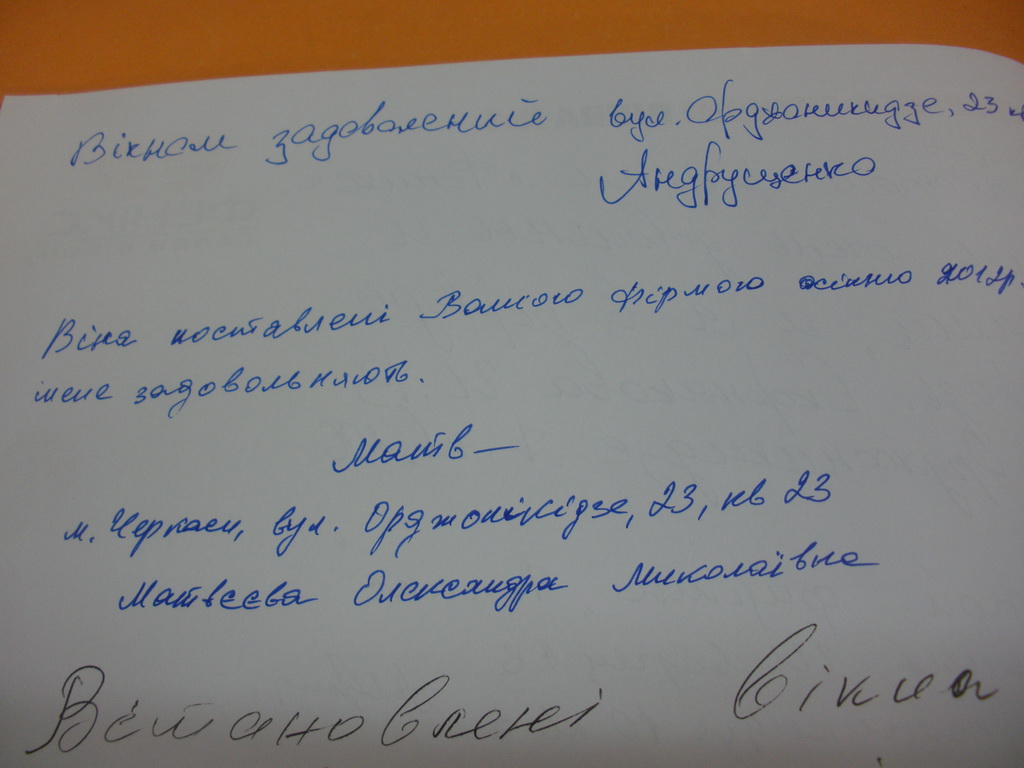 Вікном задоволений вул. Орджоникидзе, 23 кв
Андрущенко
Вікна поставлені Вашою фірмою осінню 2012р.
мене задовольняють.
Матв—
м. Черкаси, вул. Орджонікідзе, 23, кв 23
Матвєєва Олександра Миколаївна
Встановлені вікна